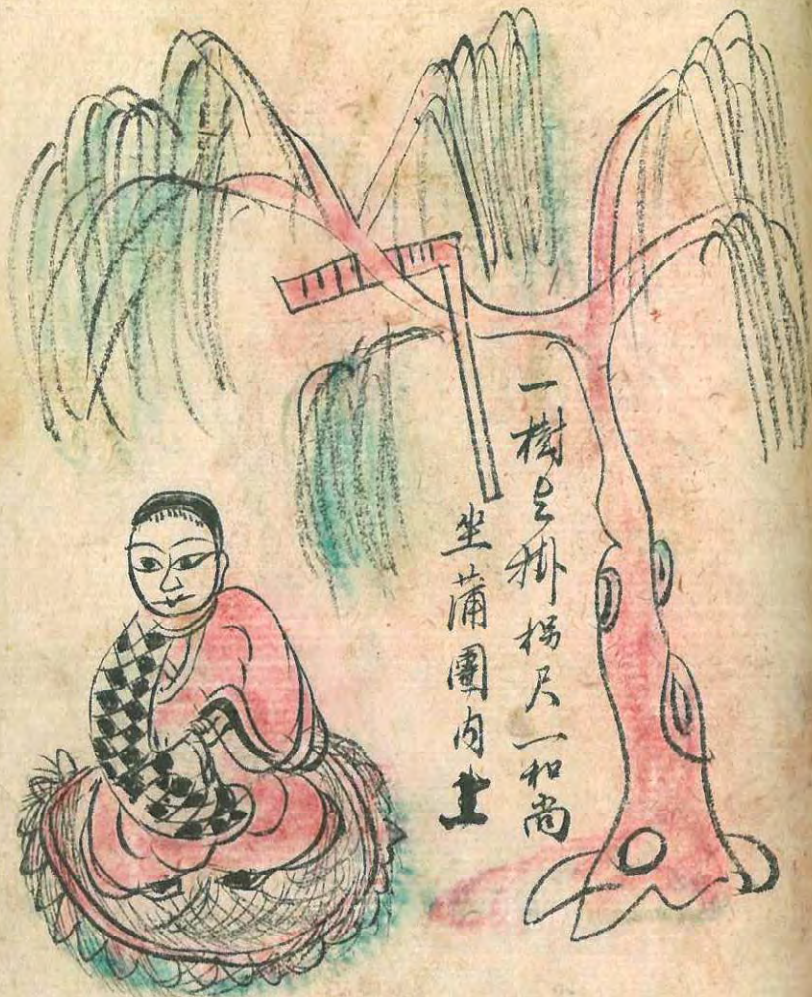 一樹上掛拐尺一和尚
坐蒲團內土